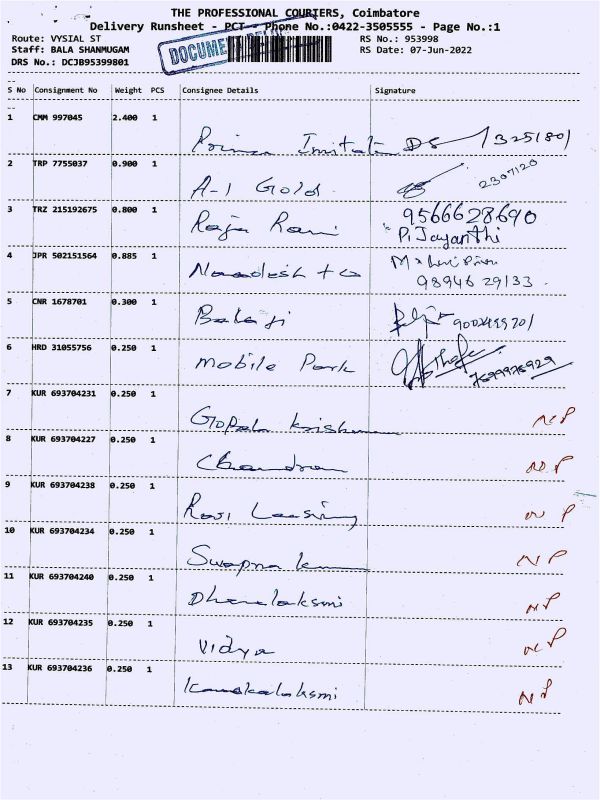 THE PROFESSIONAL COURIERS, Coimbatore
Delivery Runsheet - PCT - Phone No.:0422-3505555 - Page No.:1
Route: VYSIAL ST RS No.: 953998
Staff: BALA SHANMUGAM RS Date: 07-Jun-2022
DRS No.: DCJB95399801
DOCUMENT
S No Consignment No Weight PCS Consignee Details Signature
1 CMM 997045 2.400 1
Prince Imitation DS
2 TRP 7755037 0.900 1
A-1 Gold 2307120
3 TRZ 215192675 0.800 1 9566628690
Raja Rani P. Jayanthi
4 JPR 502151564 0.885 1
Naadesh + co 98946 29133
5 CNR 1678701 0.300 1
Balaji
6 HRD 31055756 0.250 1
Mobile Park
7 KUR 693704231 0.250 1
Gopala krishnan NP
8 KUR 693704227 0.250 1
Chandran NP
9 KUR 693704238 0.250 1
Ravi Leasing NP
10 KUR 693704234 0.250 1
Swapna NP
11 KUR 693704240 0.250 1
Dhanalaksmi NP
12 KUR 693704235 0.250 1
Vidya NP
13 KUR 693704236 0.250 1
Kanakalaksmi NP